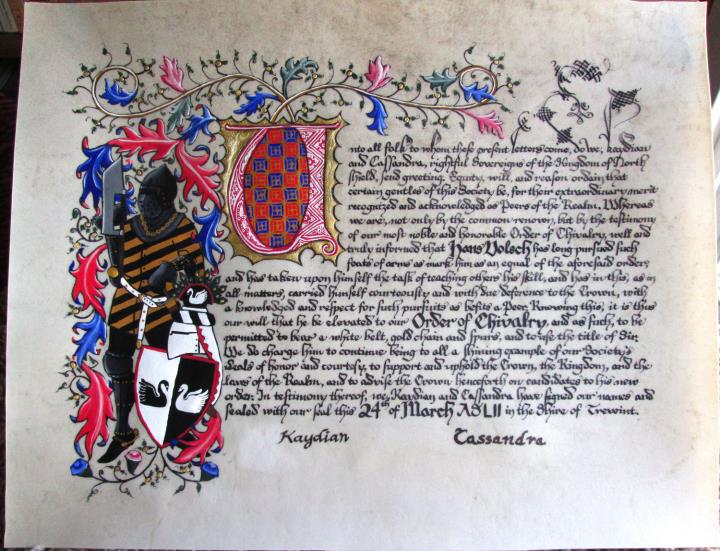 Unto all folk to whom these present letters come, do we, Kaydian
and Cassandra, rightful Sovereigns of the Kingdom of North
shold, send greeting. Equity, will, and reason ordain that
certain gentles of this Society be, for their extraordinary merit
recognized and acknowledged as Peers of the Realm. Whereas
we are, not only by the common renown, but by the testimony
of our most noble and honorable Order of Chivalry, well and
truly informed that Hans Volsch has long pursued such
feats of arms as mark him as an equal of the aforesaid order,
and has taken upon himself the task of teaching others his skill, and has in this, as in
all matters, carried himself courteously and with due deference to the Crown, with
a knowledged and respect for such pursuits as befits a Peer. Knowing this, it is thus
our will that he be elevated to our Order of Chivalry, and as such, to be
permitted to bear a white belt, gold chain and spurs, and to use the title of Sir.
We do charge him to continue being to all a shining example of our Society's
ideals of honor and courtesy, to support and uphold the Crown, the Kingdom, and the
laws of the Realm, and to advise the Crown henceforth on candidates to his new
order. In testimony thereof, we, Kaydian and Cassandra have signed our names and
sealed with our seal this 24th of March AS LII in the Shire of Trewint.
Kaydian Cassandra